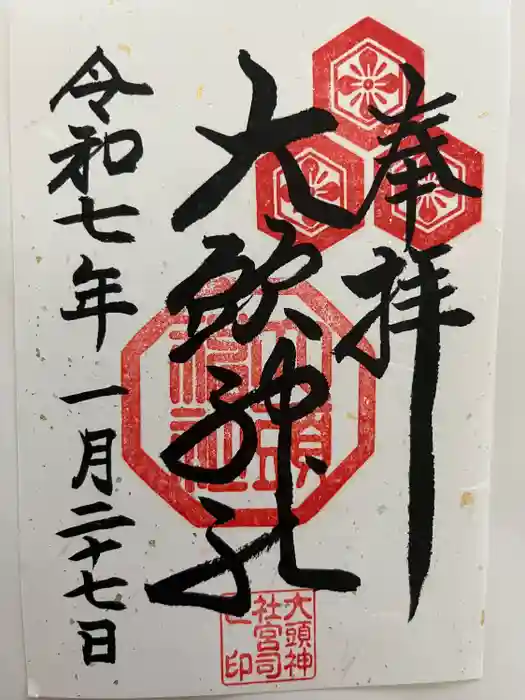 奉拝
大頭神社
令和七年一月二十七日
大頭神社
大頭神
社宮司
之印